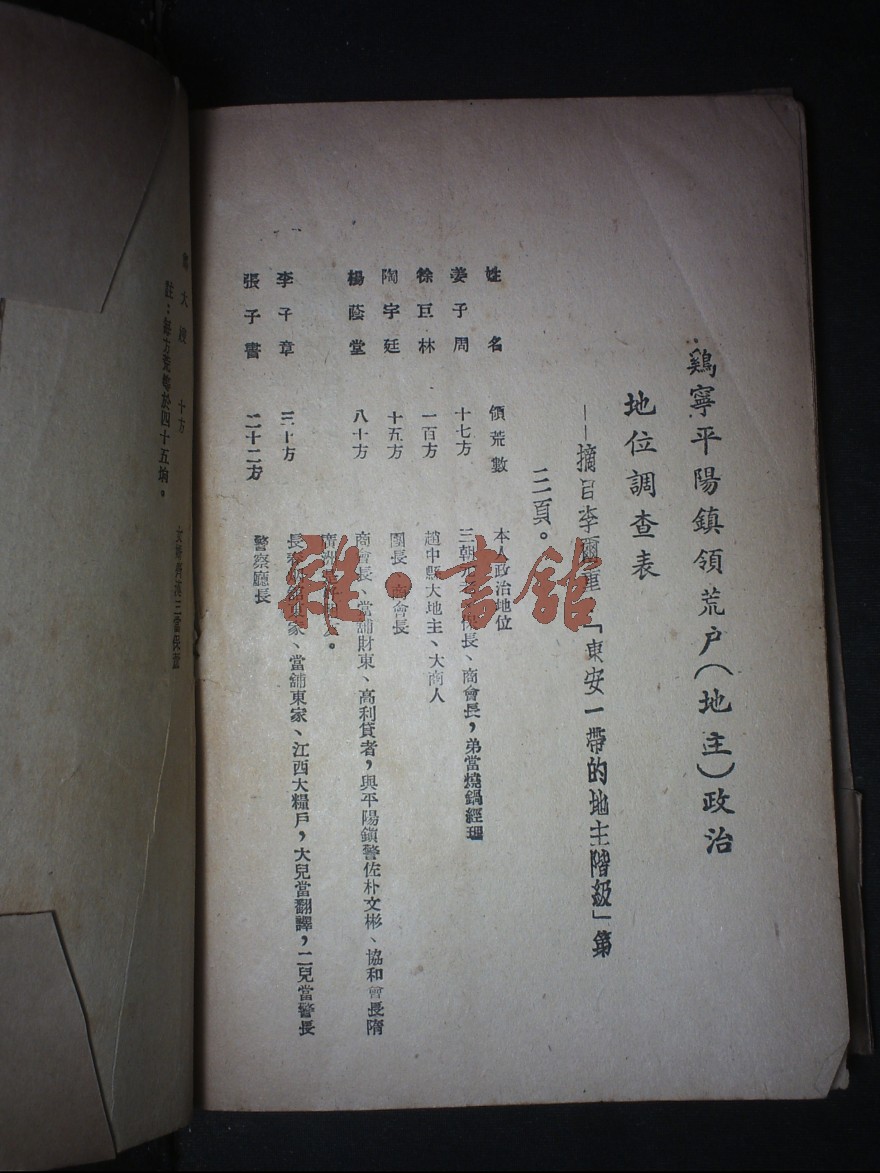 鷄寧平陽鎮領荒户(地主)政治
地位調查表
——摘自李爾重「東安一帶的地主階級」第
三二頁。
姓名 領荒數 本人政治地位
姜子周 十七方 三朝 長、商會長，弟當燒鍋經理
徐巨林 一百方 趙中縣大地主、大商人
陶宇廷 十五方 團長、商會長
楊蔭堂 八十方 商會長、當舖財東、高利貸者，與平陽鎮警佐朴文彬、協和會長隋
李子章 三十方 長春 東家、當舖東家、江西大糧戶，大兒當翻譯，二兒當警長
張子書 二十二方 警察廳長
十方
註：每方荒等於四十五垧。
雜·書館